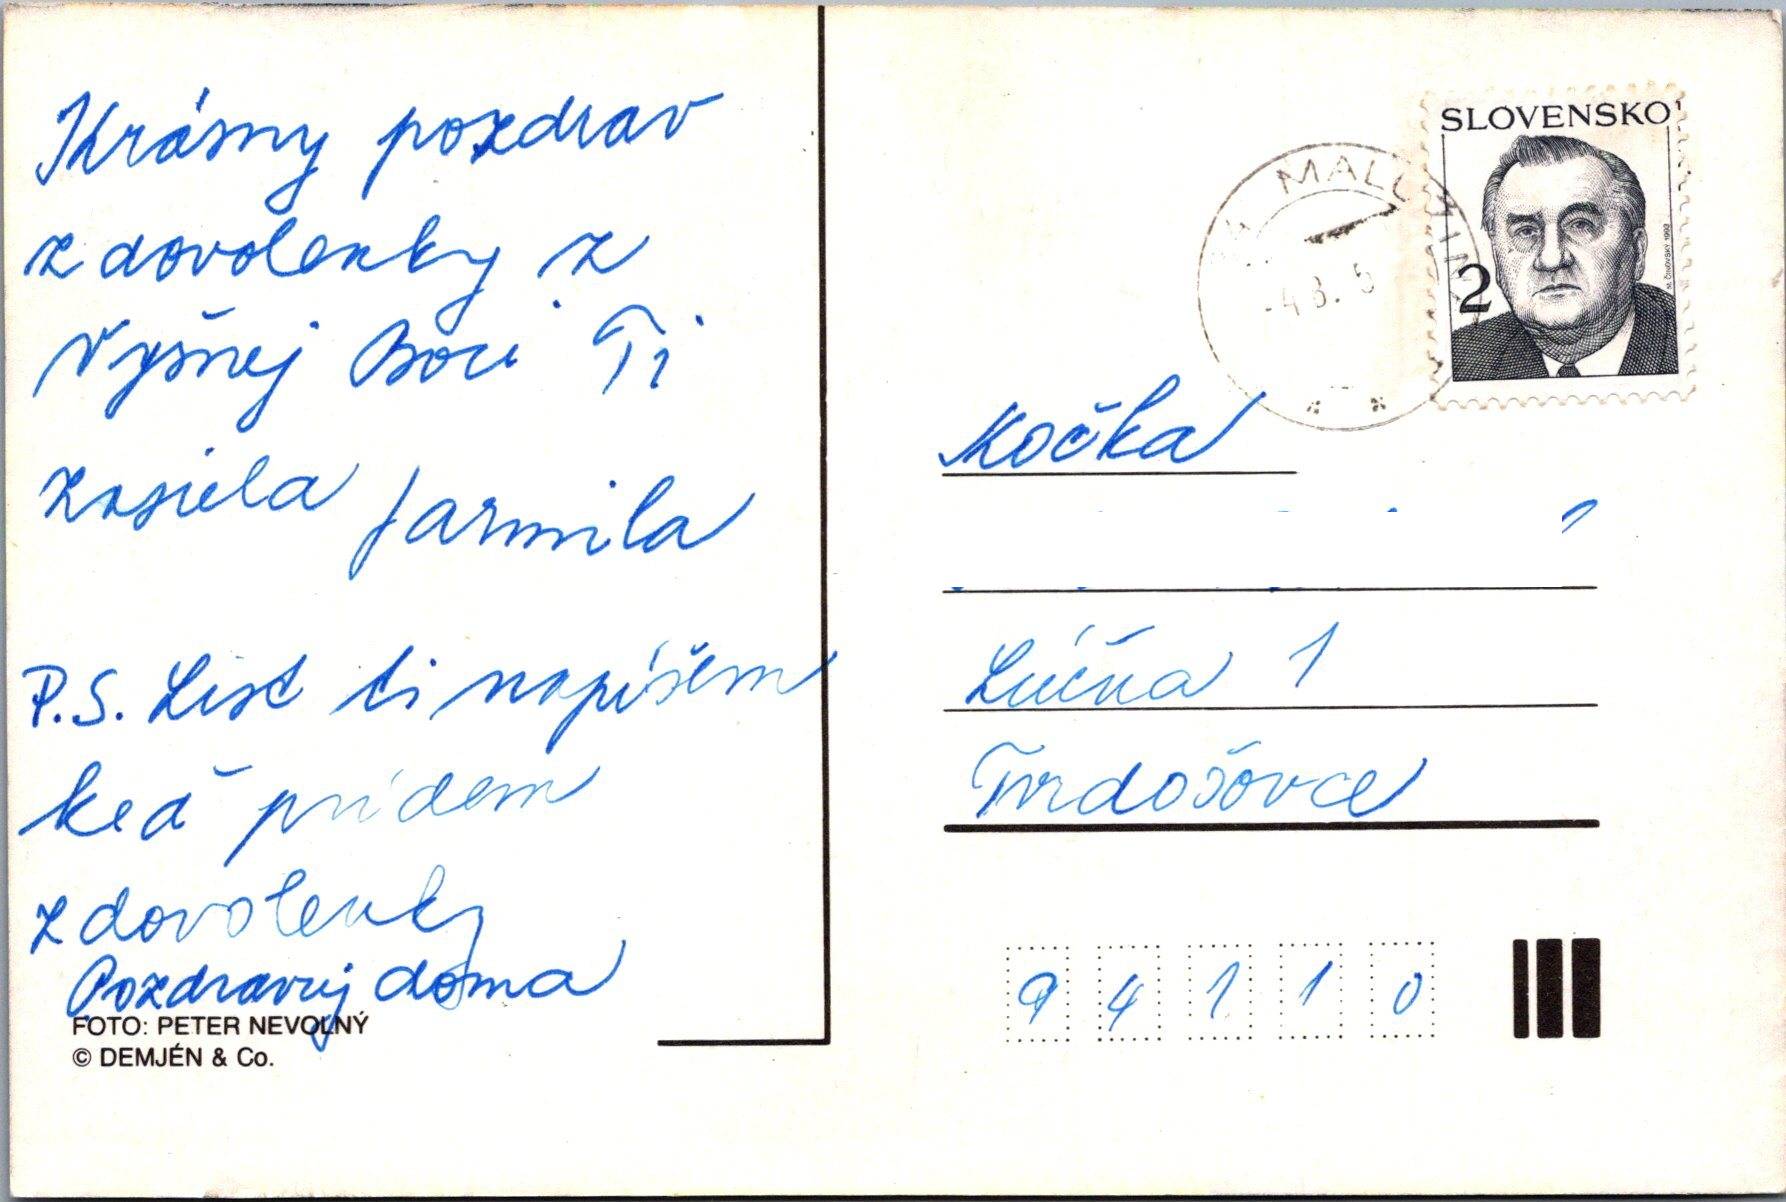 Krásny pozdrav
z dovolenky z
Vyšnej Boci Ti
zasiela Jarmila
P.S. List ti napíšem
keď prídem
z dovolenky
Pozdravuj doma
FOTO: PETER NEVOLNÝ
© DEMJÉN & Co.
SLOVENSKO
2
M. ČINOVSKÝ 1992
-4.8. 5
Kočka
Lúčna 1
Tvrdošovce
94110